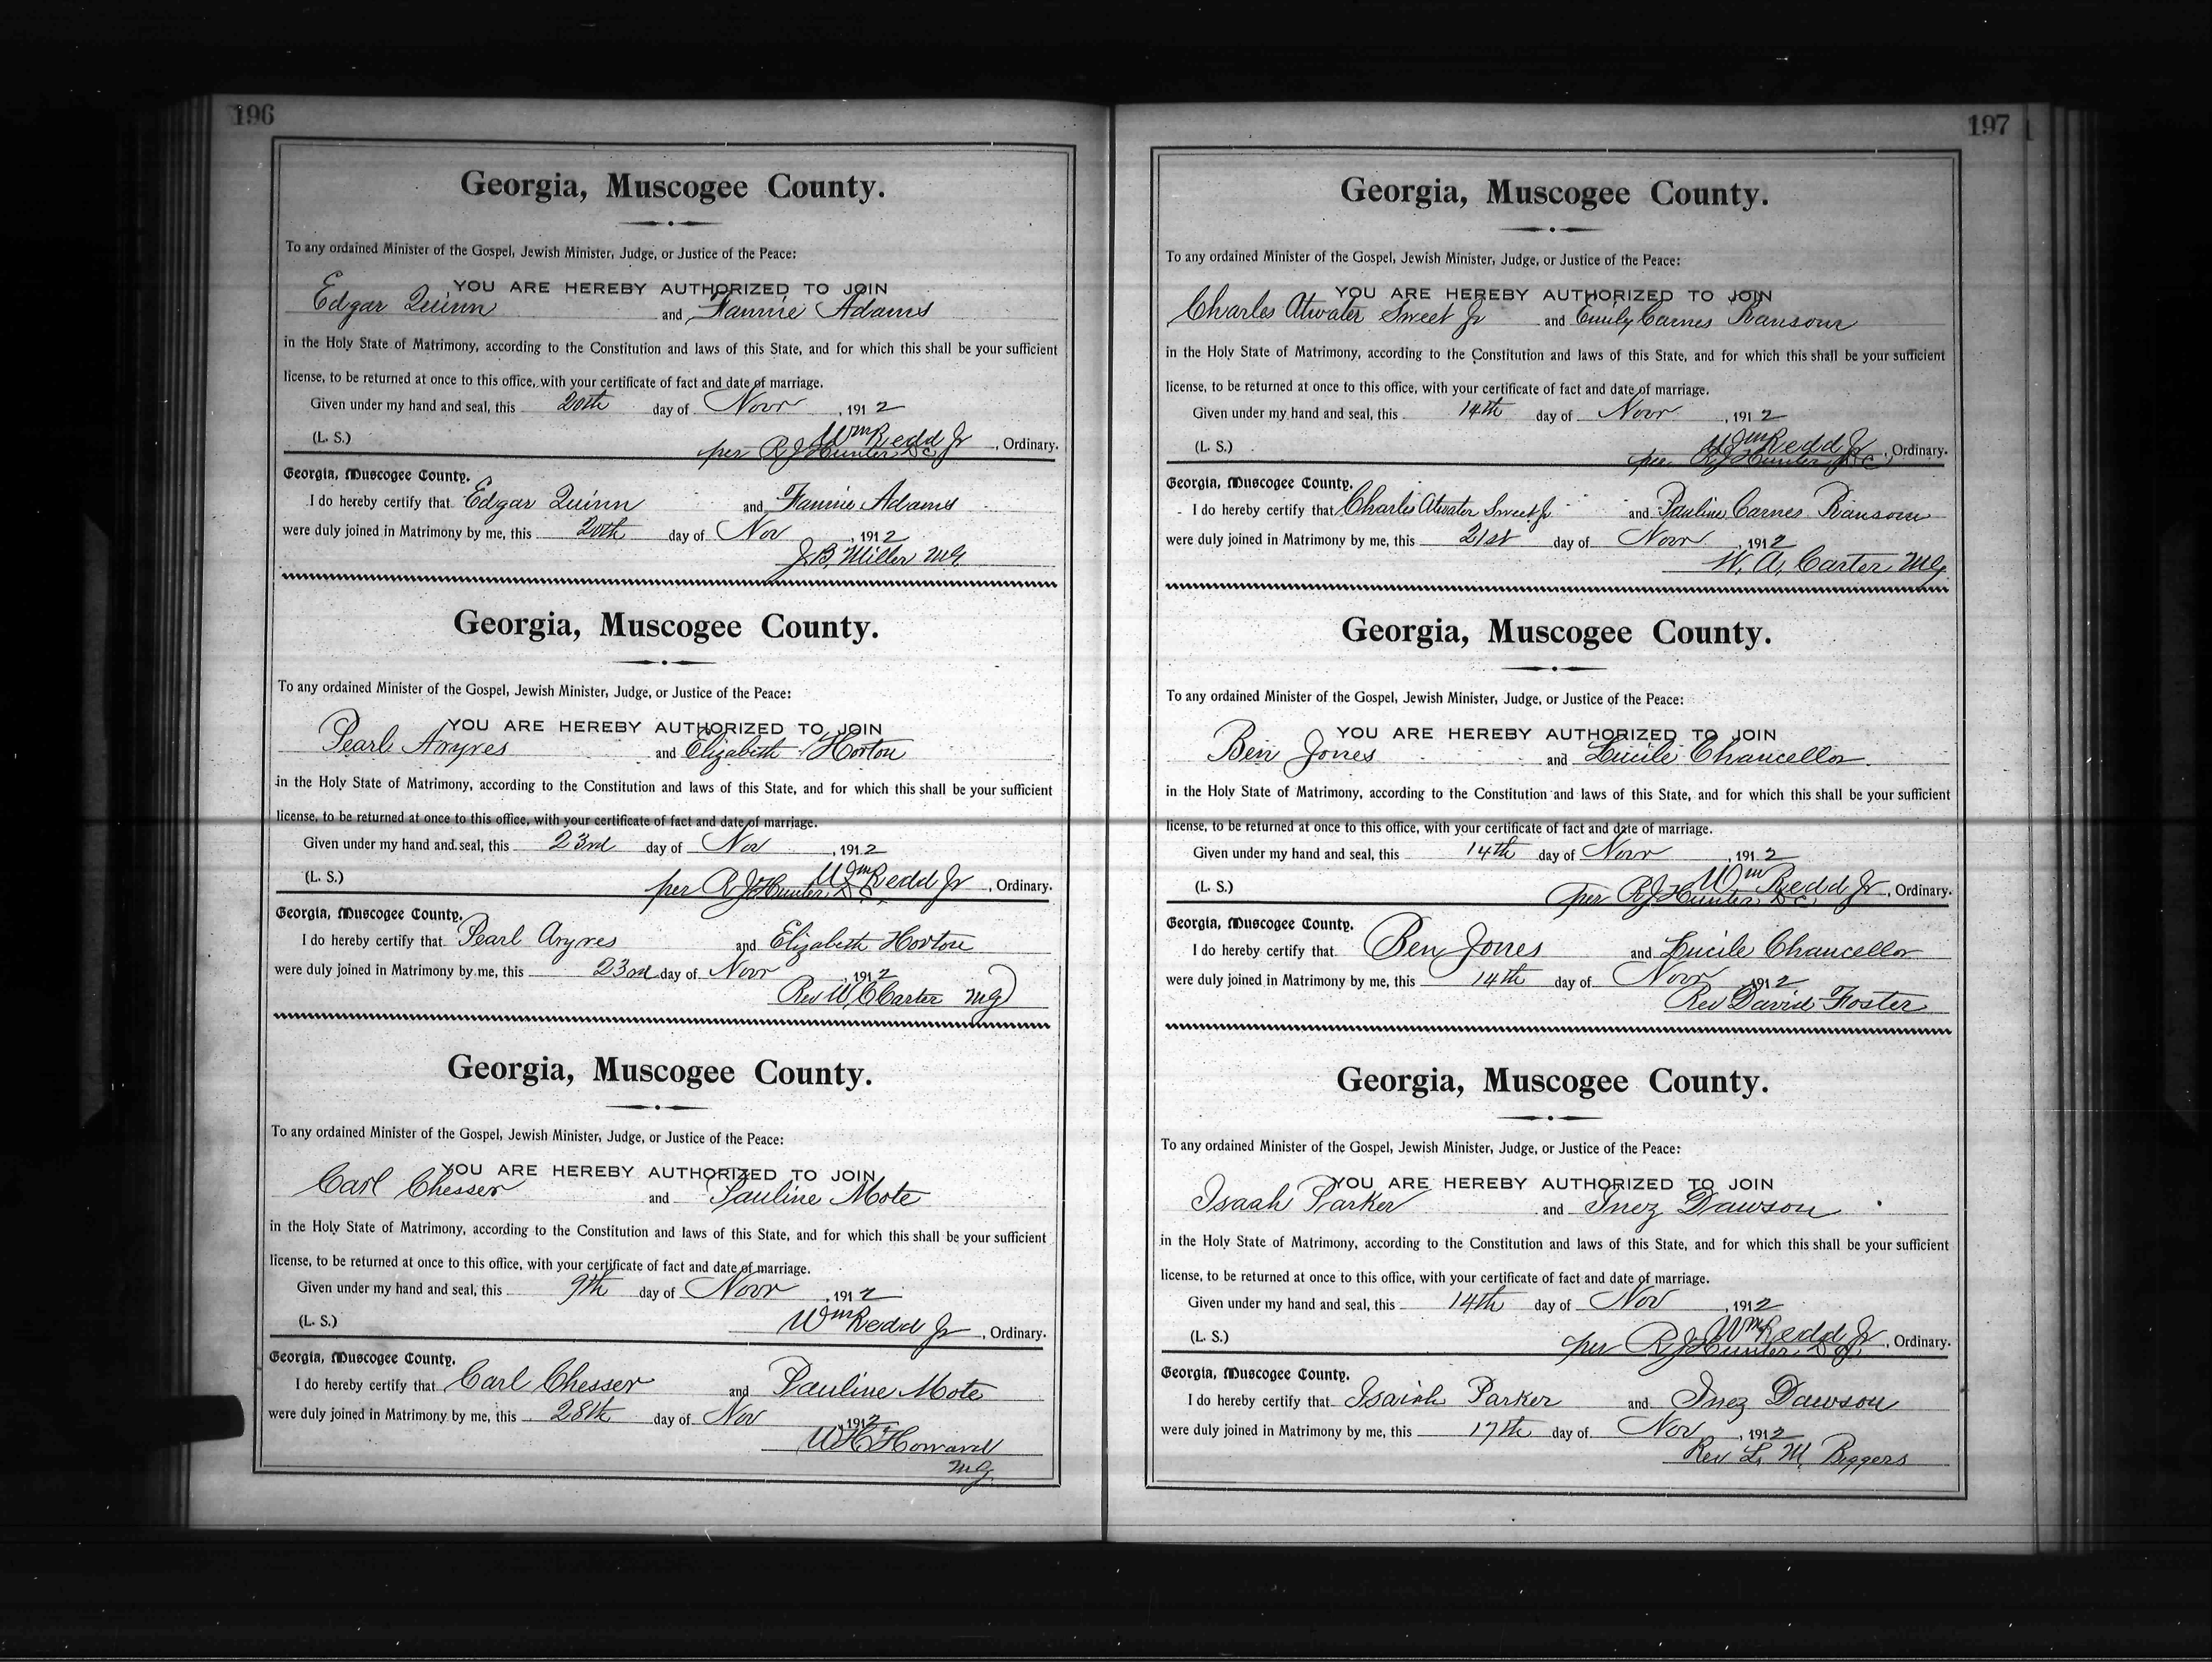 196
Georgia, Muscogee County.
To any ordained Minister of the Gospel, Jewish Minister, Judge, or Justice of the Peace:
YOU ARE HEREBY AUTHORIZED TO JOIN
Edgar Quinn and Fannie Adams
in the Holy State of Matrimony, according to the Constitution and laws of this State, and for which this shall be your sufficient
license, to be returned at once to this office, with your certificate of fact and date of marriage.
Given under my hand and seal, this 20th day of Novr, 1912
Wm Redd Jr
(L. S.) per RJ Hunter D.C., Ordinary.
Georgia, Muscogee County.
I do hereby certify that Edgar Quinn and Fannie Adams
were duly joined in Matrimony by me, this 20th day of Nov, 1912
J.B. Miller MG
Georgia, Muscogee County.
To any ordained Minister of the Gospel, Jewish Minister, Judge, or Justice of the Peace:
YOU ARE HEREBY AUTHORIZED TO JOIN
Pearl and Elizabeth Horton
in the Holy State of Matrimony, according to the Constitution and laws of this State, and for which this shall be your sufficient
license, to be returned at once to this office, with your certificate of fact and date of marriage.
Given under my hand and seal, this 23rd day of Nov, 1912
Wm Redd Jr
(L. S.) per RJ Hunter D.C., Ordinary.
Georgia, Muscogee County.
I do hereby certify that Pearl and Elizabeth Horton
were duly joined in Matrimony by me, this 23rd day of Novr, 1912
Rev W C Carter MG
Georgia, Muscogee County.
To any ordained Minister of the Gospel, Jewish Minister, Judge, or Justice of the Peace:
YOU ARE HEREBY AUTHORIZED TO JOIN
Carl Chesser and Pauline Mote
in the Holy State of Matrimony, according to the Constitution and laws of this State, and for which this shall be your sufficient
license, to be returned at once to this office, with your certificate of fact and date of marriage.
Given under my hand and seal, this 9th day of Novr, 1912
(L. S.) Wm Redd Jr, Ordinary.
Georgia, Muscogee County.
I do hereby certify that Carl Chesser and Pauline Mote
were duly joined in Matrimony by me, this 28th day of Nov, 1912
WH Howard
MG
197
Georgia, Muscogee County.
To any ordained Minister of the Gospel, Jewish Minister, Judge, or Justice of the Peace:
YOU ARE HEREBY AUTHORIZED TO JOIN
Charles Atwater Sweet Jr and Emily Carnes Ransom
in the Holy State of Matrimony, according to the Constitution and laws of this State, and for which this shall be your sufficient
license, to be returned at once to this office, with your certificate of fact and date of marriage.
Given under my hand and seal, this 14th day of Novr, 1912
Wm Redd Jr
(L. S.) per RJ Hunter D.C., Ordinary.
Georgia, Muscogee County.
I do hereby certify that Charles Atwater Sweet Jr and Pauline Carnes Ransom
were duly joined in Matrimony by me, this 21st day of Novr, 1912
W. A. Carter MG
Georgia, Muscogee County.
To any ordained Minister of the Gospel, Jewish Minister, Judge, or Justice of the Peace:
YOU ARE HEREBY AUTHORIZED TO JOIN
Ben Jones and Lucile Chancellor
in the Holy State of Matrimony, according to the Constitution and laws of this State, and for which this shall be your sufficient
license, to be returned at once to this office, with your certificate of fact and date of marriage.
Given under my hand and seal, this 14th day of Novr, 1912
Wm Redd Jr
(L. S.) per RJ Hunter D.C., Ordinary.
Georgia, Muscogee County.
I do hereby certify that Ben Jones and Lucile Chancellor
were duly joined in Matrimony by me, this 14th day of Novr, 1912
Rev David Foster
Georgia, Muscogee County.
To any ordained Minister of the Gospel, Jewish Minister, Judge, or Justice of the Peace:
YOU ARE HEREBY AUTHORIZED TO JOIN
Isaah Parker and Inez Dawson
in the Holy State of Matrimony, according to the Constitution and laws of this State, and for which this shall be your sufficient
license, to be returned at once to this office, with your certificate of fact and date of marriage.
Given under my hand and seal, this 14th day of Nov, 1912
Wm Redd Jr
(L. S.) per RJ Hunter D.C., Ordinary.
Georgia, Muscogee County.
I do hereby certify that Isaiah Parker and Inez Dawson
were duly joined in Matrimony by me, this 17th day of Nov, 1912
Rev L. M. Biggers